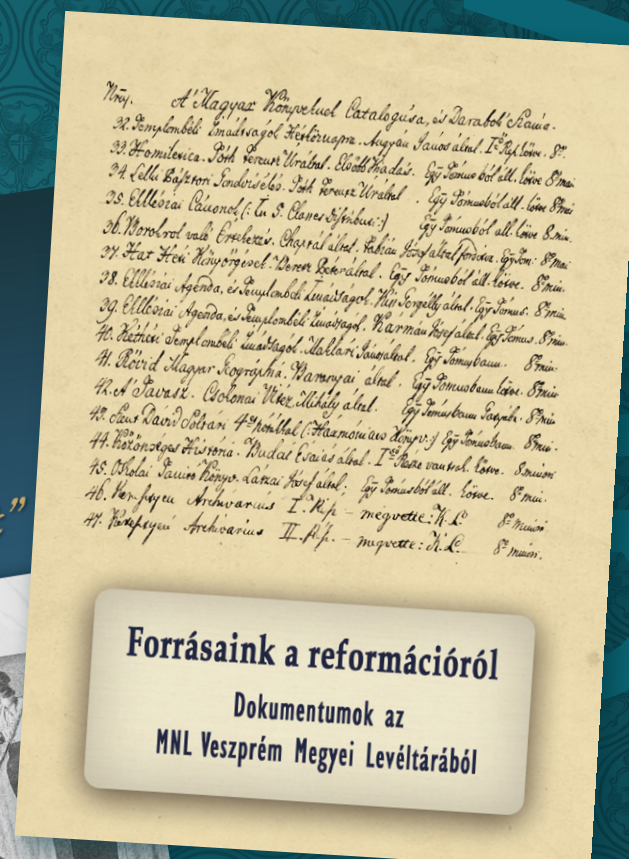 A' Magyar Könyveknek Catalogusa, és Darabok Száma.
32. Templombéli Imádságok Hétköznapra.
33. Homiletica. Tóth Ferentz Úr által. Egy Tomusból áll. kötve
34. Lelki Pásztori Gondviselés. Tóth Ferentz Úr által. Egy Tomusból áll. kötve
35. Ekklésiai Cánonok Egy Tomusból áll. kötve 8. min.
36. Borokról való Értekezés. Chaptal által. Fábián József által
37. Hat Heti Könyörgések. Veresz Péter által. Egy Tomusból áll. kötve. 8° min.
38. Ekklésiai Agenda, és Templombéli Imádságok. Kiss Gergelly által. Egy Tomus. 8° min.
39. Ekklésiai Agenda, és Templombéli Imádságok. Kármán József által. Egy Tomus. 8° min.
40. Hétheti Templombéli Imádságok. Maklári János által. Egy Tomusbann. 8° min.
41. Rövid Magyar Geográphia. Baranyai által. Egy Tomusbann kötve. 8° min.
42. A' Tavasz. Csokonai Vitéz Mihály által. Egy Tomusbann 8° min.
43. Szent Dávid Soltári 4es hóttákkal (: Harmóniás Könyv :) Egy Tomusbann. 8° min.
44. Közönséges História. Budai Esaiás által. kötve. 8. minori
45. Oskolai Tanító Könyv. Látzai Jósef által; Egy Tomusból áll. kötve. 8° min.
46. Archivarius I. R.p. – megvette: K. L. 8° minori
47. Archivarius II. R.p. – megvette: K. L. 8° minori.
Forrásaink a reformációról
Dokumentumok az
MNL Veszprém Megyei Levéltárából